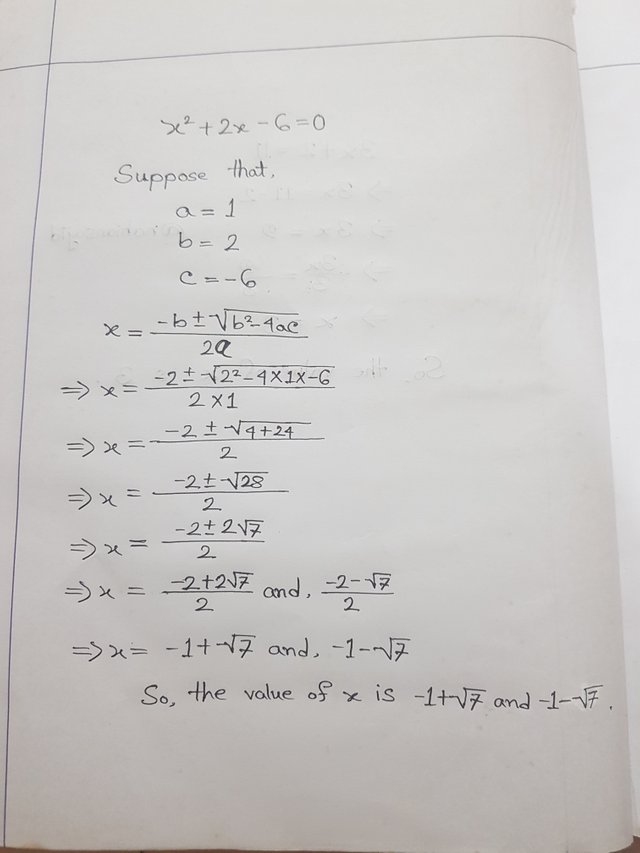 x² + 2x - 6 = 0
Suppose that,
a = 1
b = 2
c = -6
x = (-b ± √(b² - 4ac)) / 2a
⇒ x = (-2 ± √(2² - 4×1×-6)) / (2×1)
⇒ x = (-2 ± √(4+24)) / 2
⇒ x = (-2 ± √28) / 2
⇒ x = (-2 ± 2√7) / 2
⇒ x = (-2+2√7) / 2 and, (-2-√7) / 2
⇒ x = -1+√7 and, -1-√7
So, the value of x is -1+√7 and -1-√7.